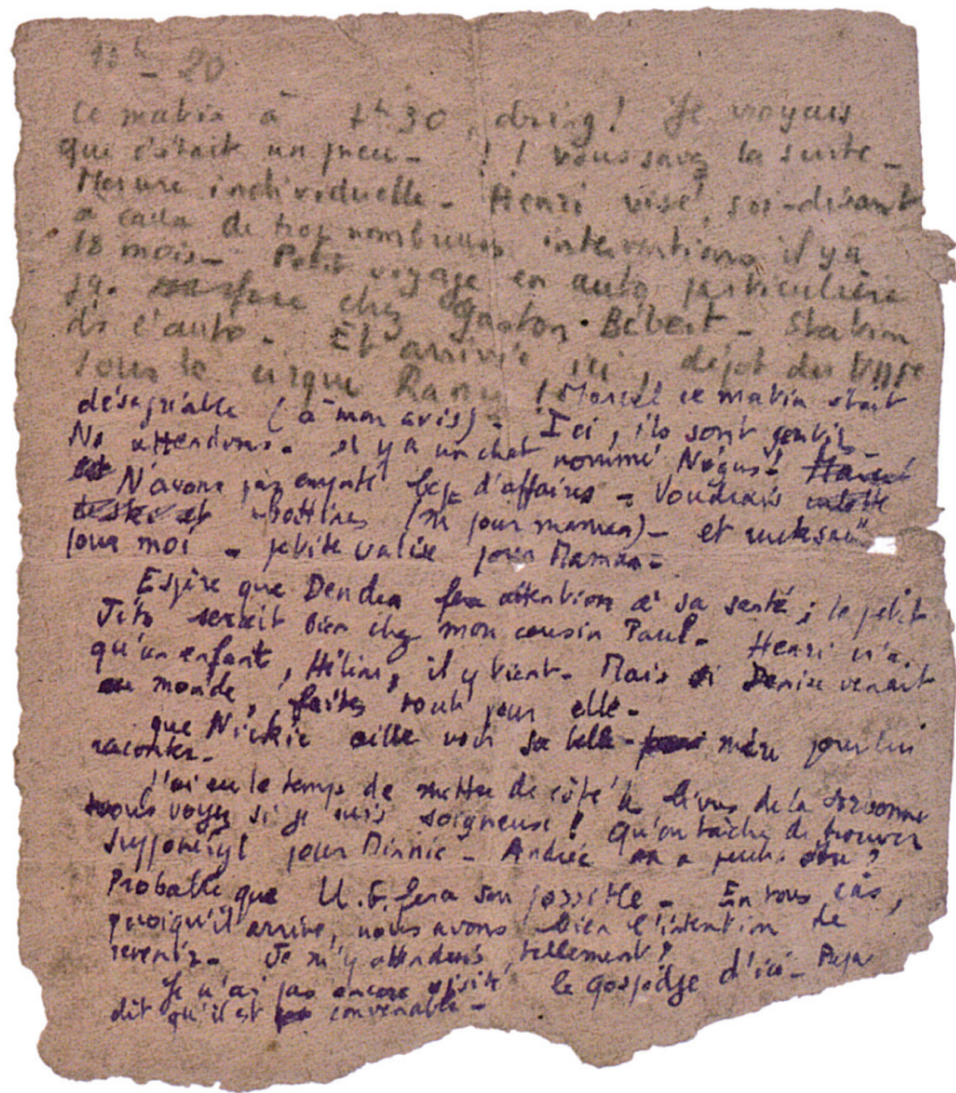 13h - 20
Ce matin à 7h30, dring! Je croyais
que c'était un pneu - !! vous savez la suite -
Mesure individuelle - Henri visé, soi-disant
à cause de trop nombreuses interventions il y a
18 mois - Petit voyage en auto particulière
jq. face chez Gaston Bébert - Station
ds l'auto - Et arrivée ici, dépôt du VIIIe
sous le cirque Rancy! Marcel ce matin était
désagréable (à mon avis) - Ici, ils sont gentils
Ns attendons - Il y a un chat nommé Négus!
N'avons pas emporté bcp d'affaires - Voudrais culotte
de ski et bottines (ni pour maman) - et rucksac
pour moi - petite valise pour Maman -
Espère que Denden fera attention à sa santé; le petit
Jito serait bien chez mon cousin Paul - Henri n'a
qu'un enfant, Hélène, il y tient - Mais si Denise venait
au monde, faites tout pour elle -
que Nickie aille voir sa belle- mère pour lui
raconter -
J'ai eu le temps de mettre de côté livres de la Sorbonne
vous voyez si je suis soigneuse! Qu'on tâche de trouver
Suppoméryl pour Minnie - Andrée
Probable que U.G. fera son possible - En tous cas,
quoiqu'il arrive, nous avons bien l'intention de
revenir - Je m'y attendais tellement?
Je n'ai pas encore visité le gospodje d'ici - Papa
dit qu'il est convenable -